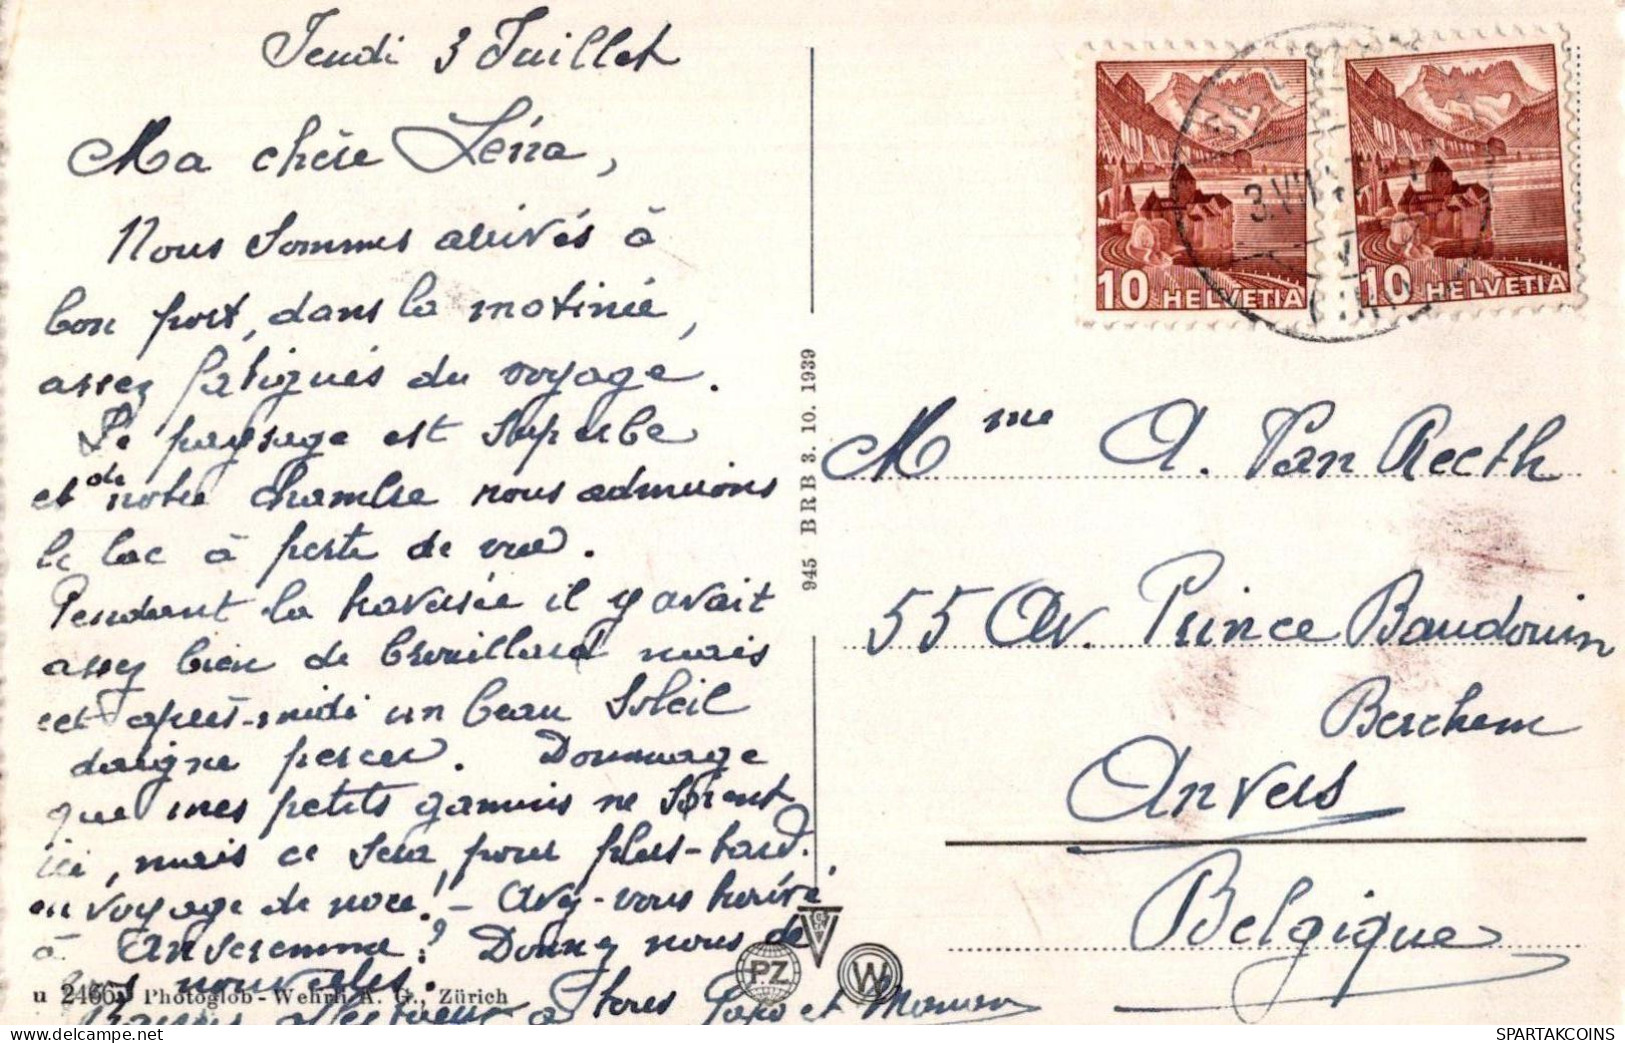 Jeudi 3 Juillet
Ma chère Léna,
Nous sommes arrivés à
bon port, dans la matinée,
assez fatigués du voyage.
Le paysage est superbe
et de notre chambre nous admirons
le lac à perte de vue.
Pendant la traversée il y avait
assez bien de brouillard mais
cet après-midi un beau soleil
daigne percer. Dommage
que mes petits gamins ne soient
ici, mais ce sera pour plus-tard.
en voyage de noce! - Avez-vous trouvé
à Anseremme? Donnez nous de
vos nouvelles.
Baisers affectueux à tous Papa et Maman
u 2466 Photoglob-Wehrli A. G., Zürich
945 BRB 3. 10. 1939
P.Z
W
10 HELVETIA
10 HELVETIA
3.VII
Mme A. Van Reeth
55 Av. Prince Baudouin
Berchem
Anvers
Belgique
SPARTAKCOINS